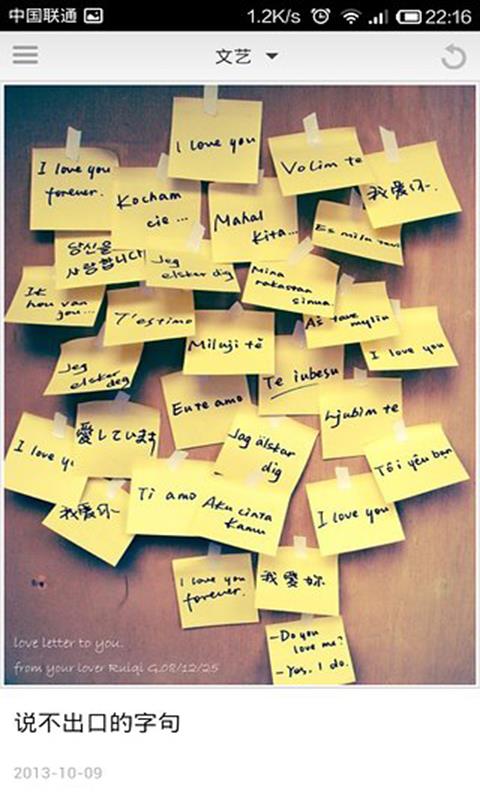 中国联通 1.2K/s 22:16
文艺
I love you
I love you
forever.
Kocham
cie ...
Mahal
kita...
Volim te
我爱你.
Es milu tevi
당신을
사랑합니다
Jeg
elsker dig
Mina
rakastan
sinua.
Ik
hou van
jou...
T'estimo
Miluji tě
Aš tave myliu
I love you
Jeg
elsker deg
Te iubesu
Eu te amo
Ljubim te
I love yo
愛しています
Jag älskar
dig
Tôi yêu bạn
我爱你
Ti amo
Aku cinta
Kamu
I love you
I love you
forever.
我愛妳
-Do you
love me?
-Yes, I do.
love letter to you.
from your lover Ruiqi G.08/12/25
说不出口的字句
2013-10-09